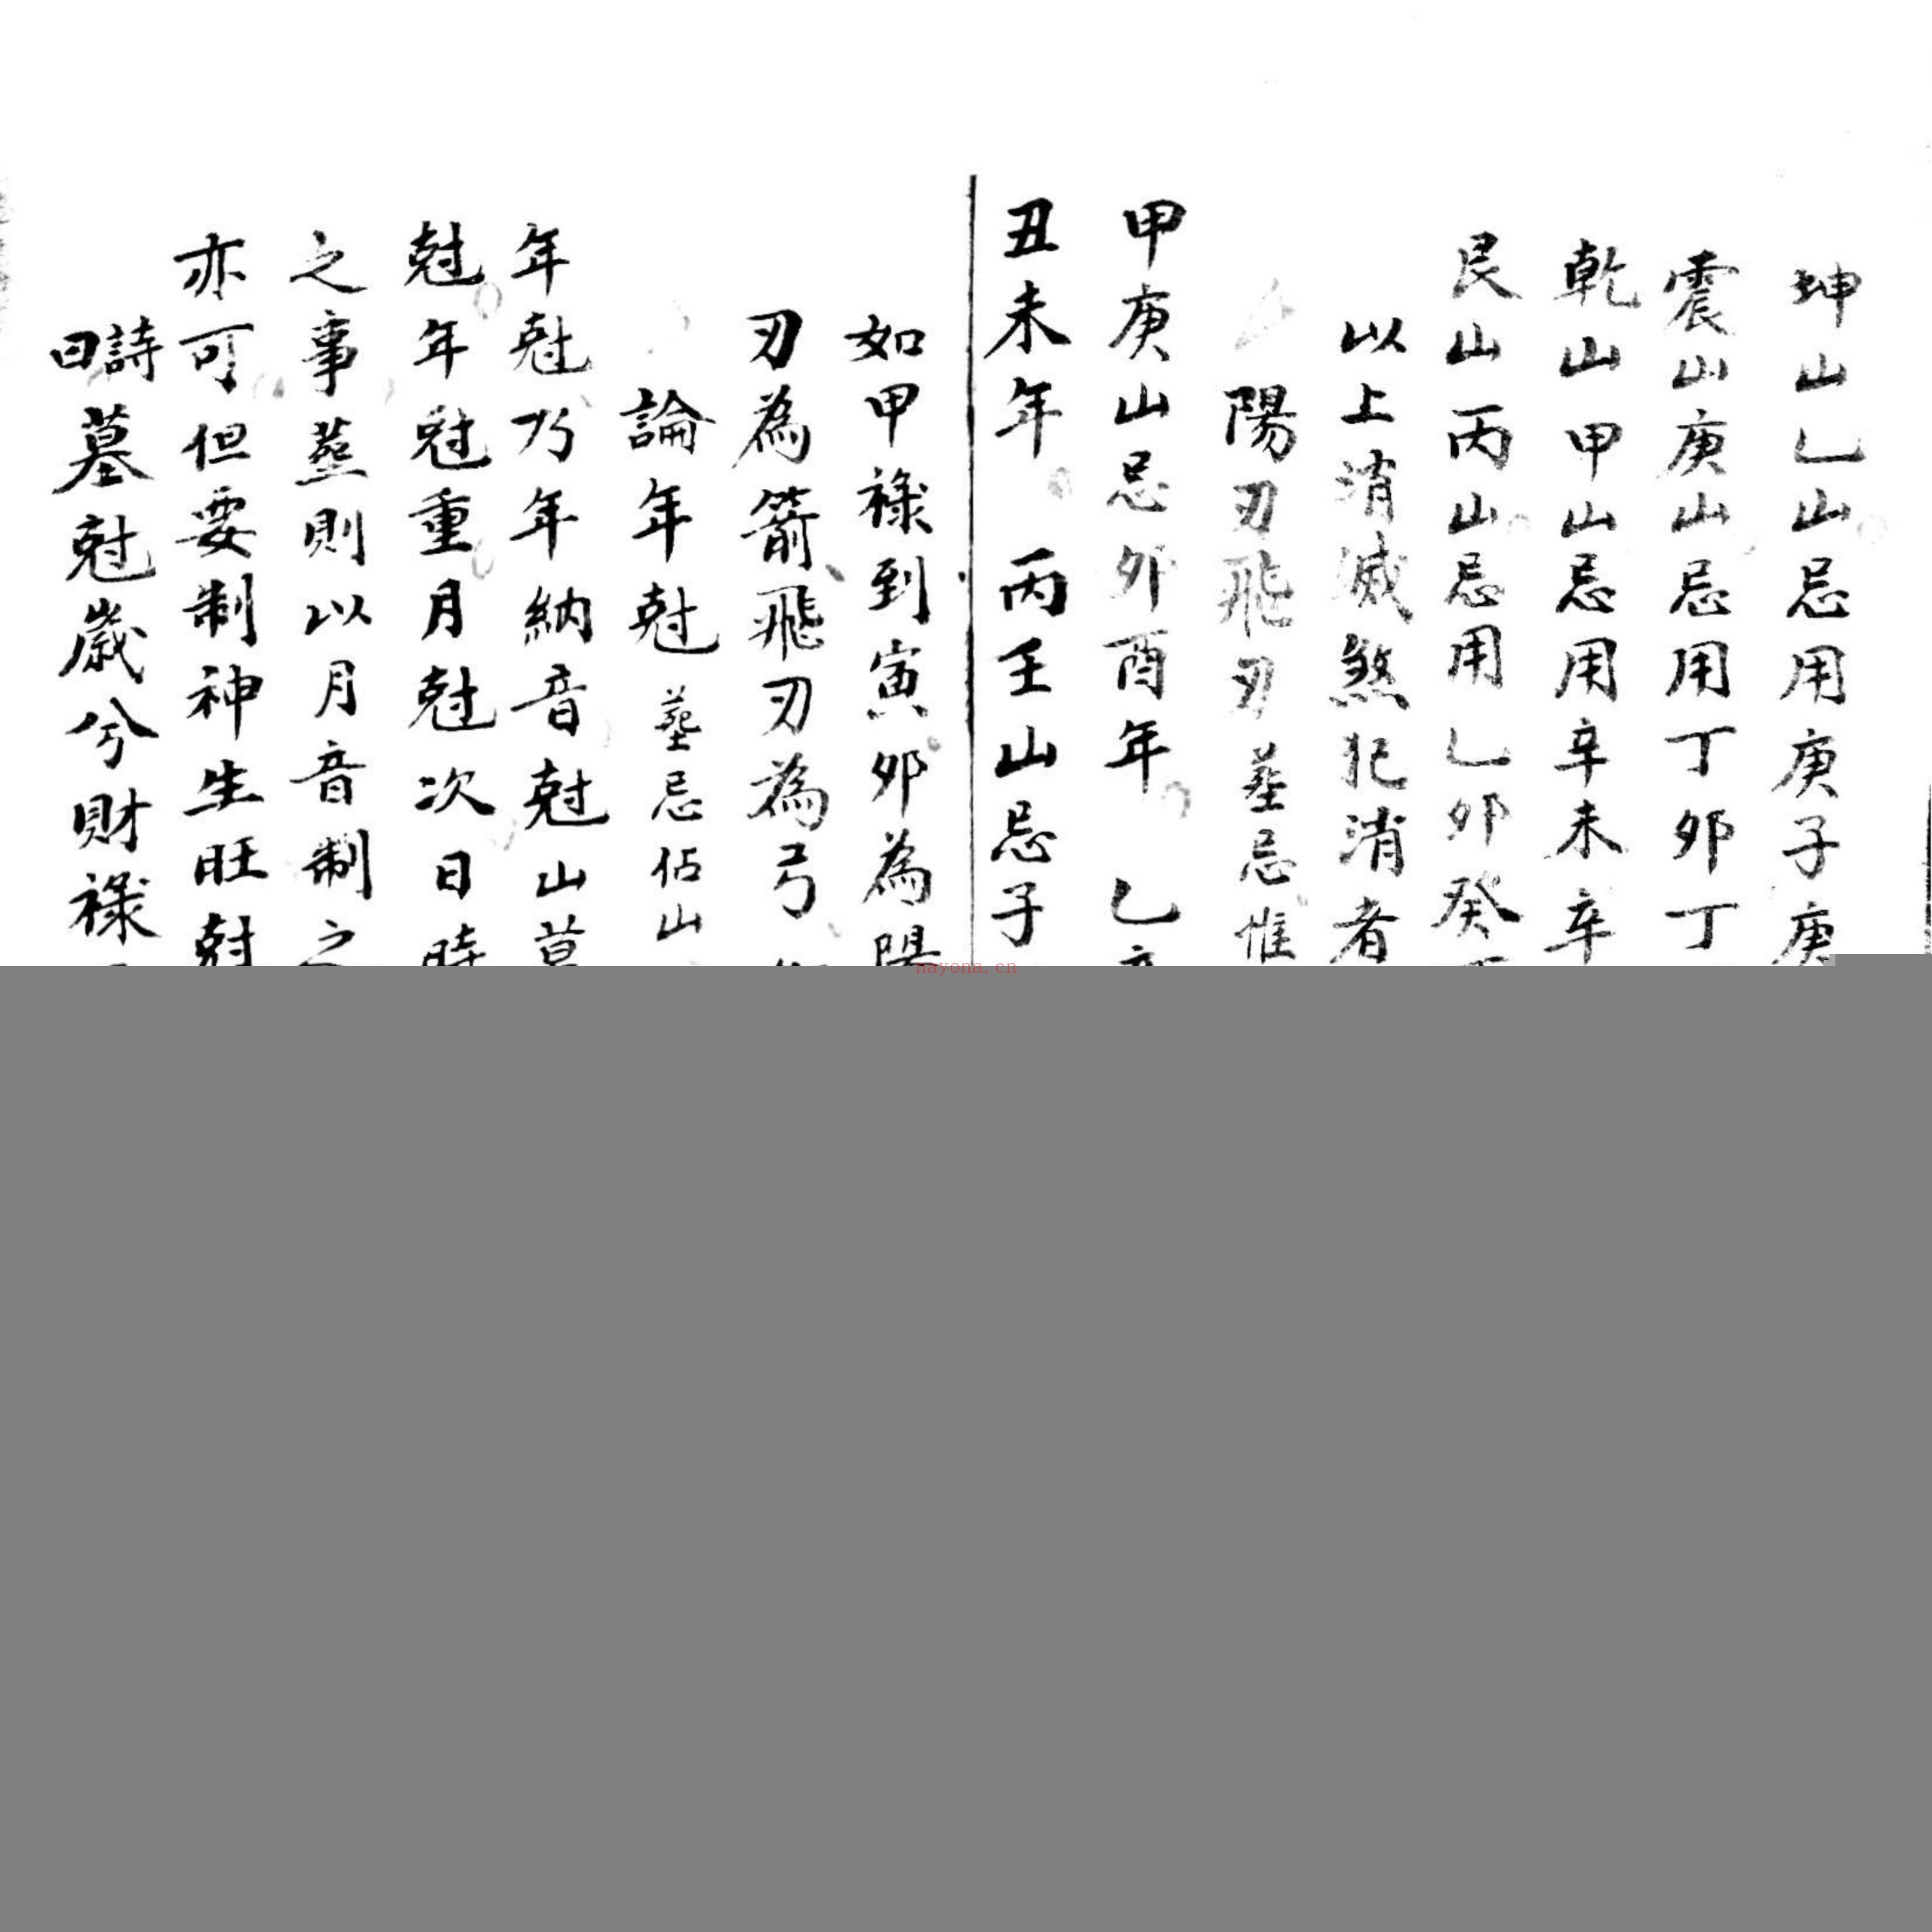 坤山乙山忌用庚子庚
震山庚山忌用丁卯丁
乾山甲山忌用辛未辛
艮山丙山忌用乙卯癸
以上消滅煞犯消者
陽刃飛刃 塟忌惟
甲庚山忌卯酉年 乙辛
丑未年 丙壬山忌子
如甲祿到寅卯為陽
刃為箭飛刃為弓
論年尅 塟忌佔山
年尅乃年納音尅山墓
尅年尅重月尅次日時
之事塟則以月音制之
亦可但要制神生旺尅
詩曰 墓尅歲兮財祿
nayona.cn